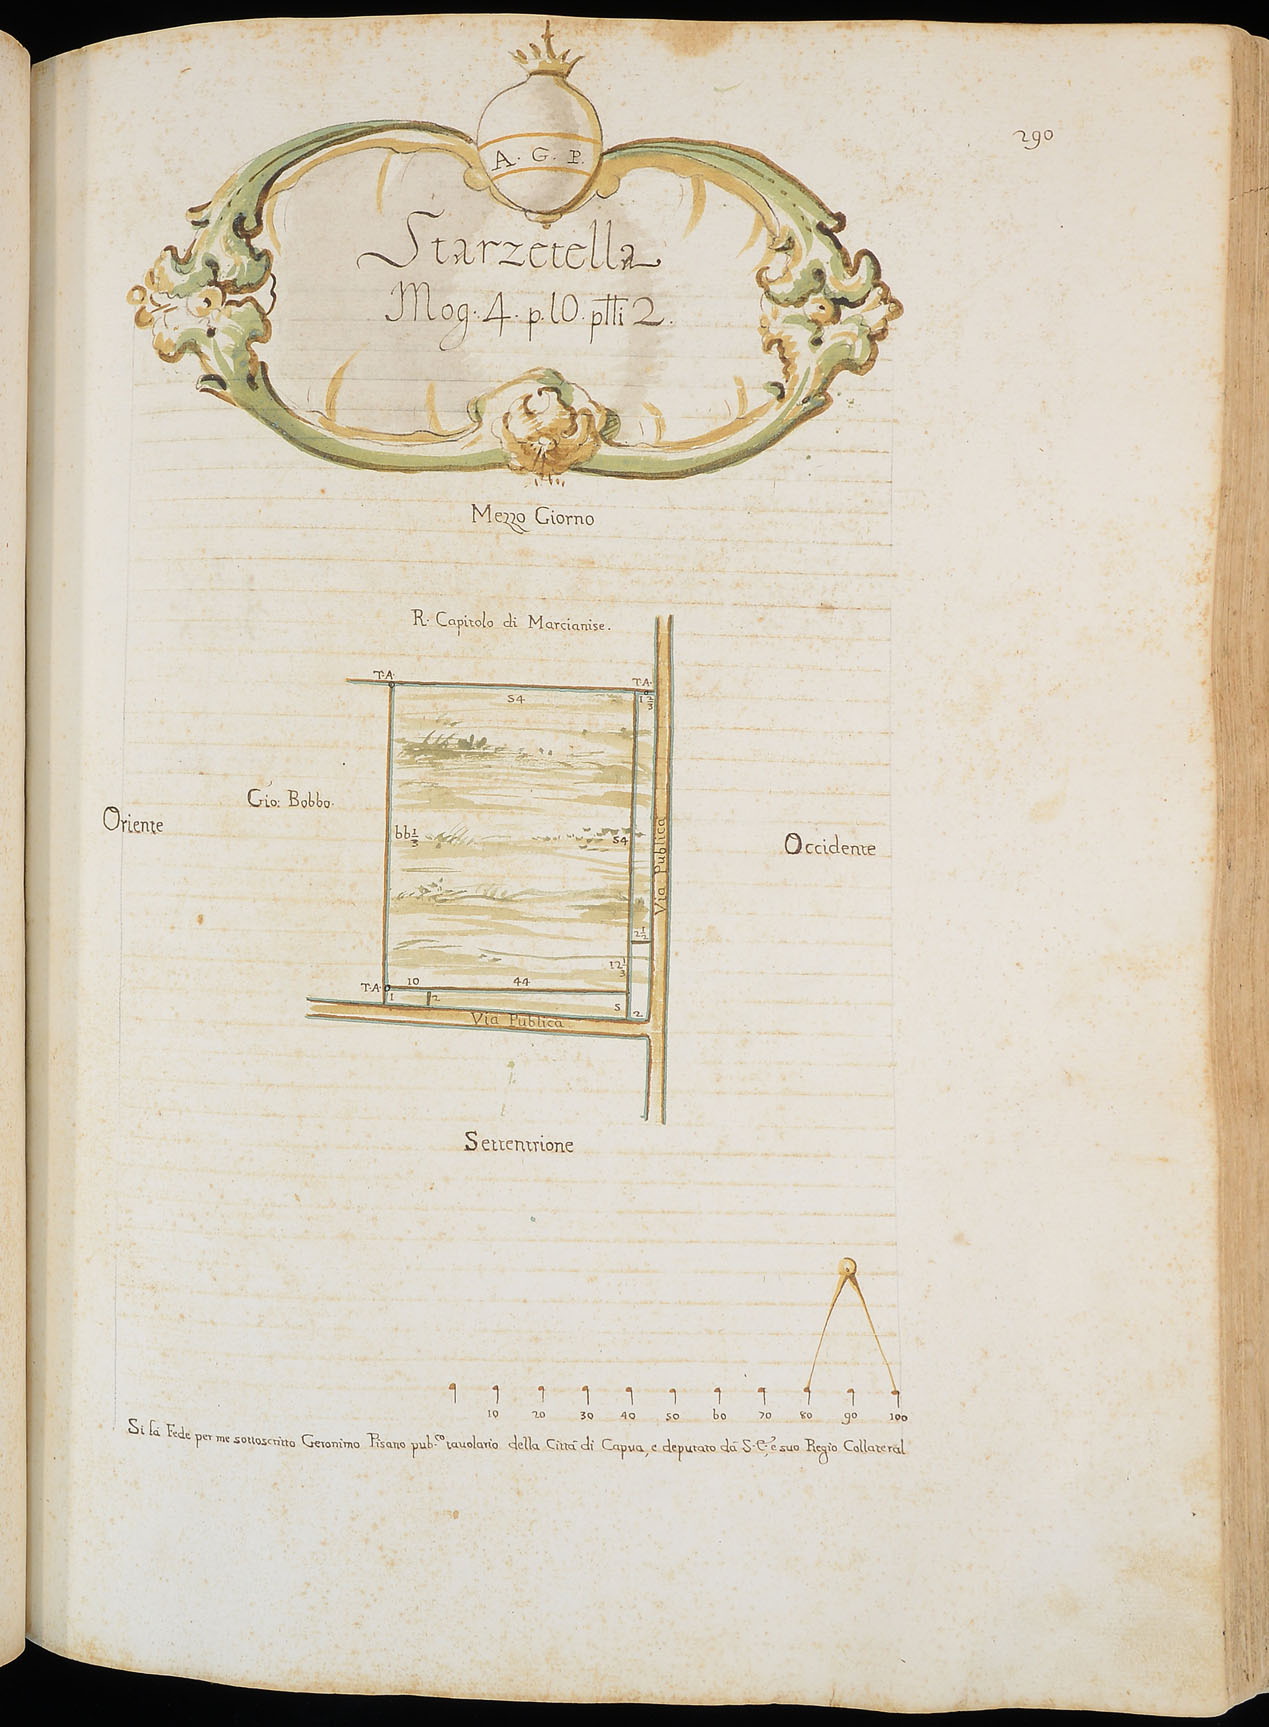 290
A. G. P.
Starzetella
Mog. 4. p. 10. ptti 2.
Mezzo Giorno
R. Capitolo di Marcianise.
T.A. T.A.
54 1 2/3
Gio: Bobbo.
Oriente
bb 1/3 54
Via Publica
Occidente
2 1/2
12 1/3
T.A. 10 44
1 2 5 2
Via Publica
Settentrione
10 20 30 40 50 60 70 80 90 100
Si fà Fede per me sottoscritto Geronimo Pisano pub.co tavolario della Città di Capua, e deputato dà S. E., e suo Regio Collateral